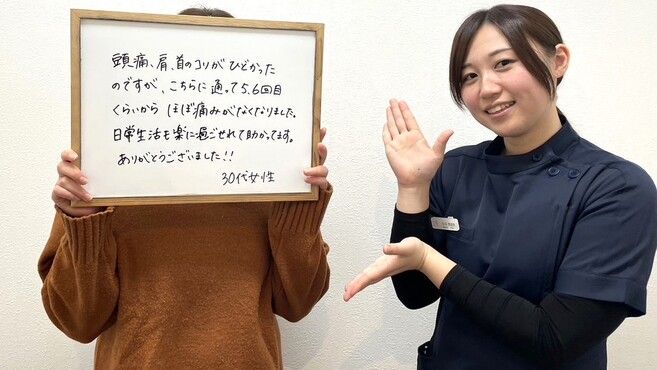 頭痛、肩、首のコリがひどかった
のですが、こちらに通って5,6回目
くらいから ほぼ痛みがなくなりました。
日常生活も楽に過ごせれて助かってます。
ありがとうございました!!
30代女性